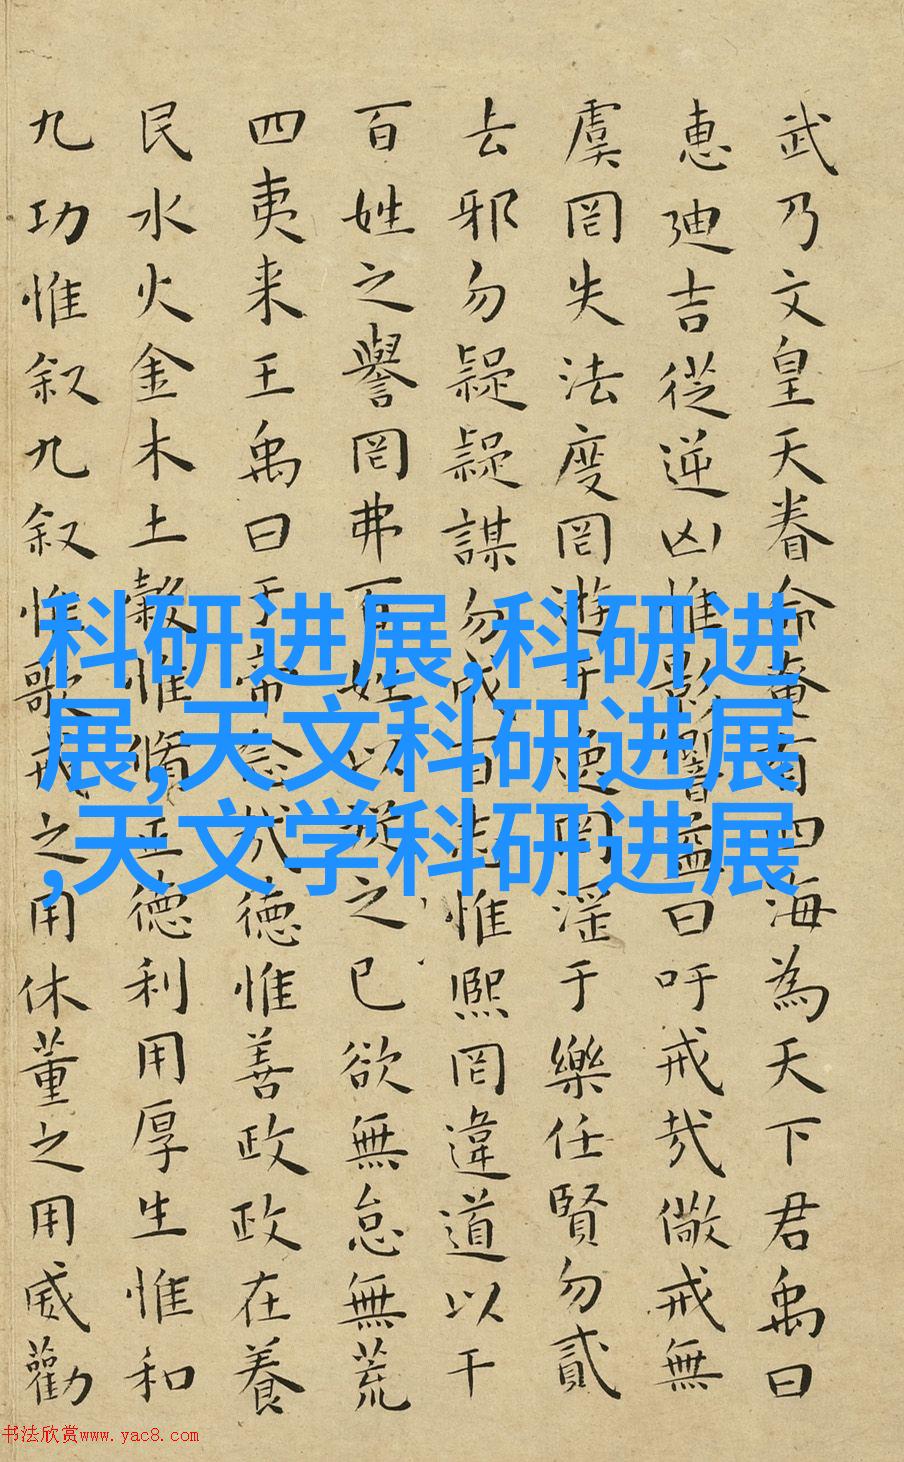 武乃文皇天眷命奄有四海為天下君禹曰
惠廸吉從逆凶惟影響益曰吁戒哉儆戒無
虞罔失法度罔遊于逸罔淫于樂任賢勿貳
去邪勿疑疑謀勿成百志惟熙罔違道以干
百姓之譽罔弗百姓以從之已欲無怠無荒
四夷来王禹曰于帝念哉德惟善政政在養
民水火金木土穀惟脩正德利用厚生惟和
九功惟叙九叙惟歌戒之用休董之用威勸
科研进展,科研进
展,天文科研进展
,天文学科研进展
书法欣赏www.yac8.com